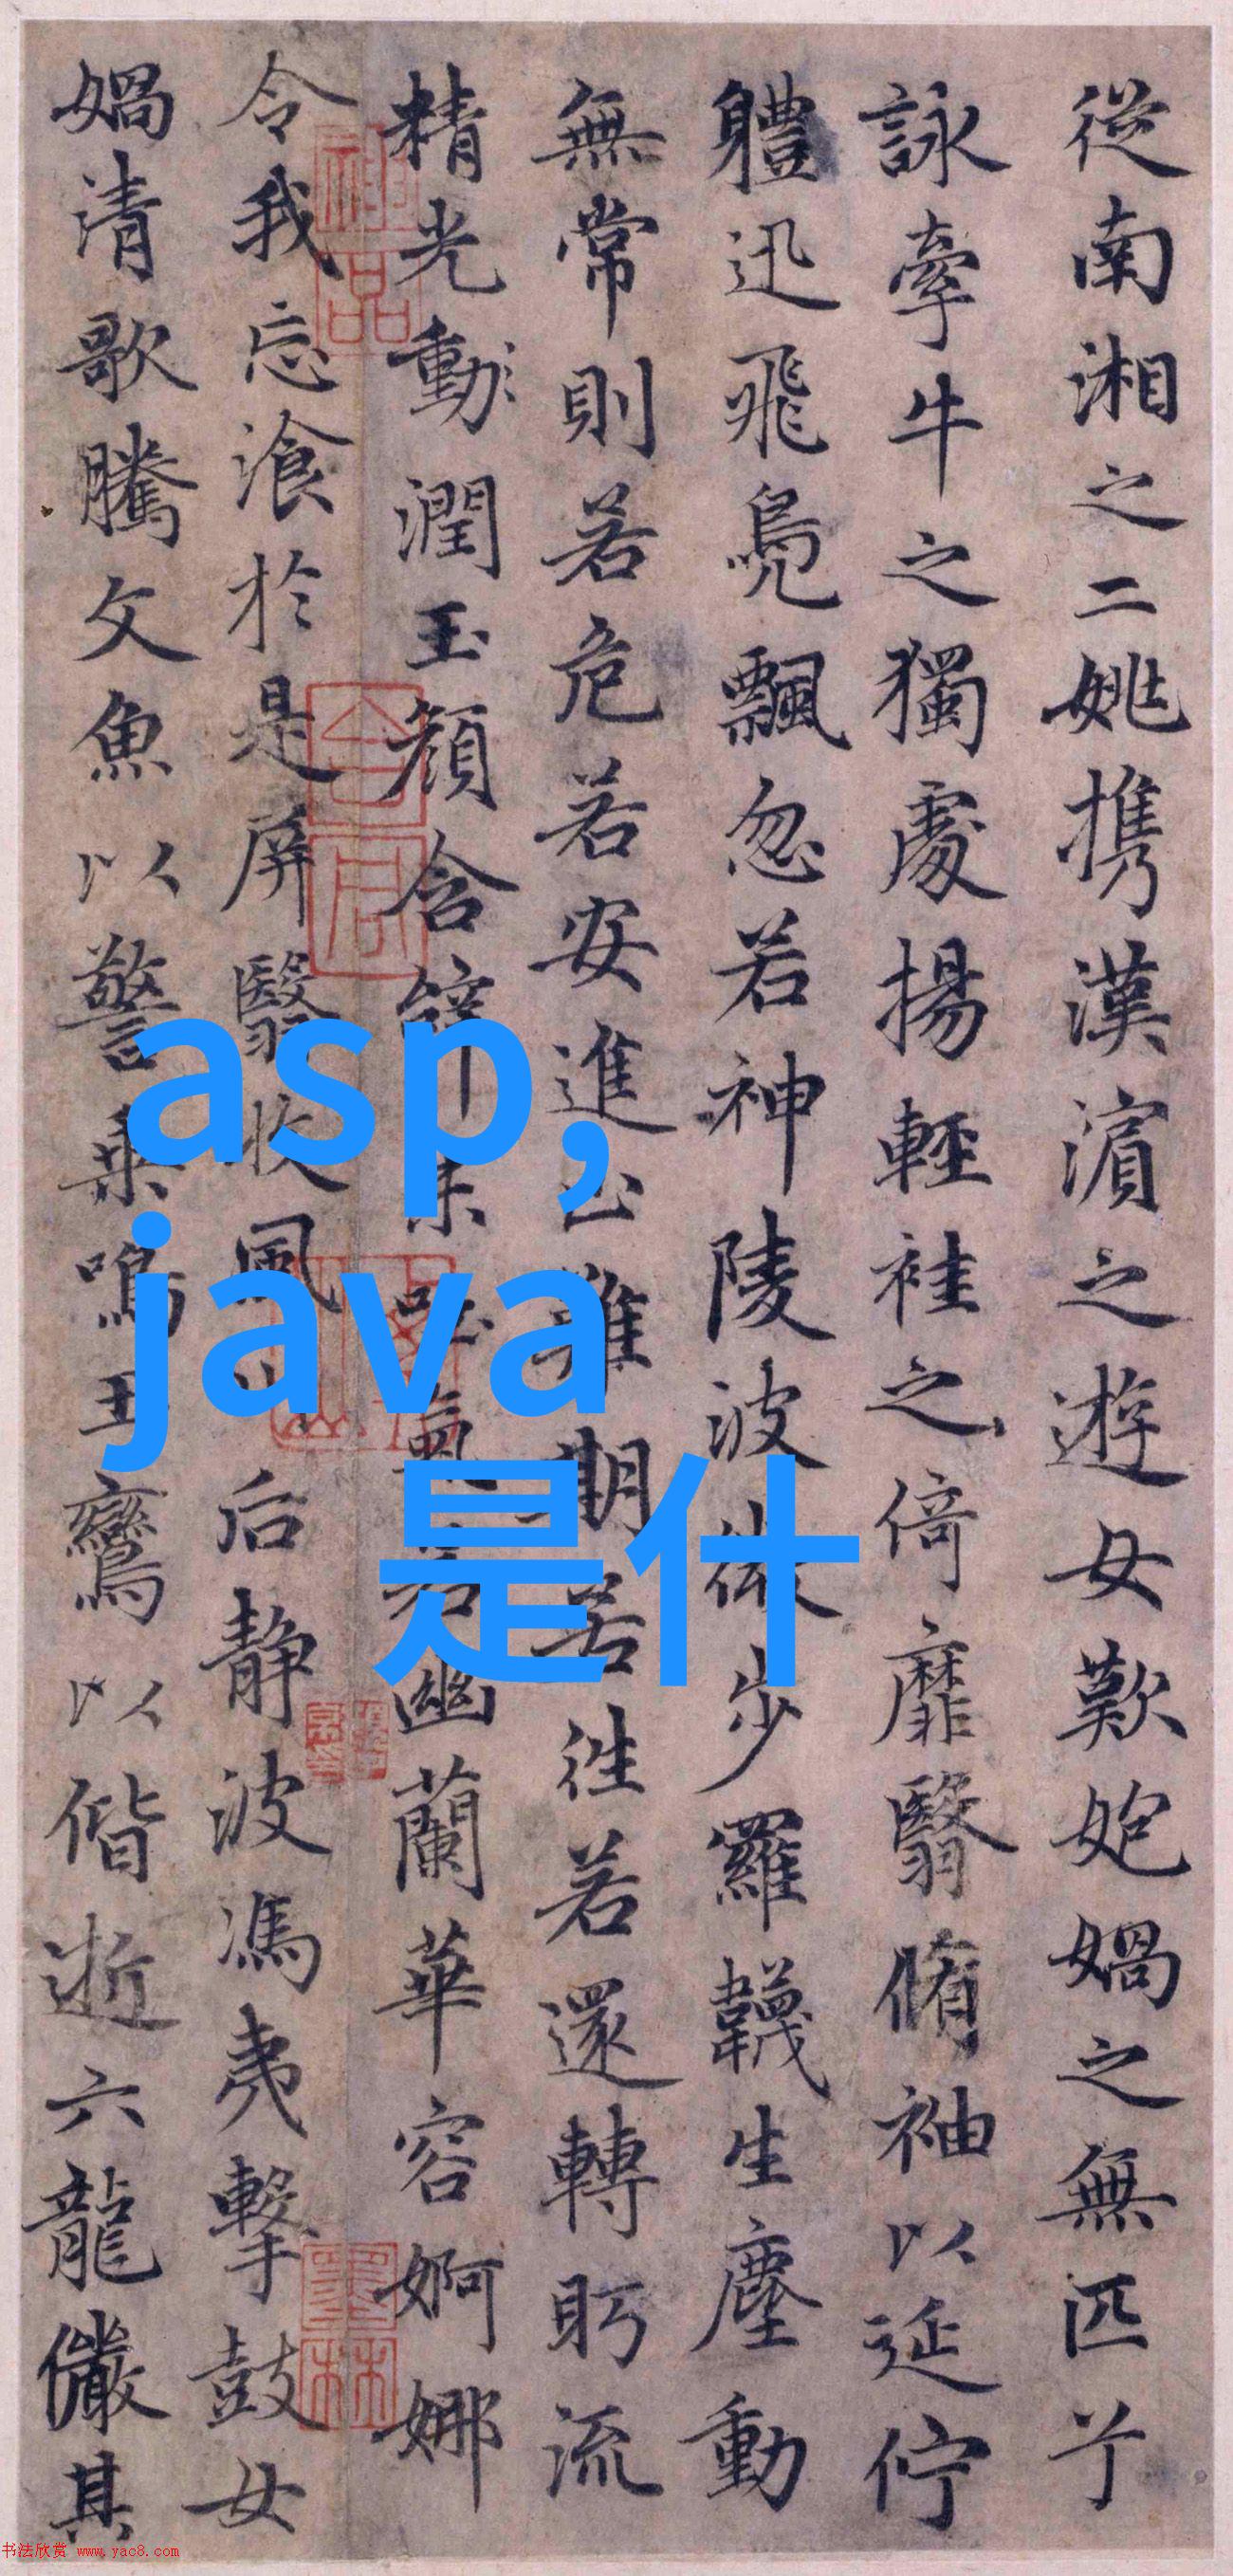 從南湘之二姚携漢濱之遊女歎媧之無匹兮
詠牽牛之獨處揚輕袿之倚靡翳脩袖以延佇
軆迅飛鳧飄忽若神陵波微步羅韈生塵動
無常則若危若安進止難期若往若還轉眄流
精光動潤玉顔含辭未吐氣若幽蘭華容婀娜
令我忘飡於是屏翳收風川后静波馮夷擊鼓女
媧清歌騰文魚以警乘鳴玉鸞以偕逝六龍儼其
神品
墨林
asp,
java
是什
书法欣赏 www.yac8.com